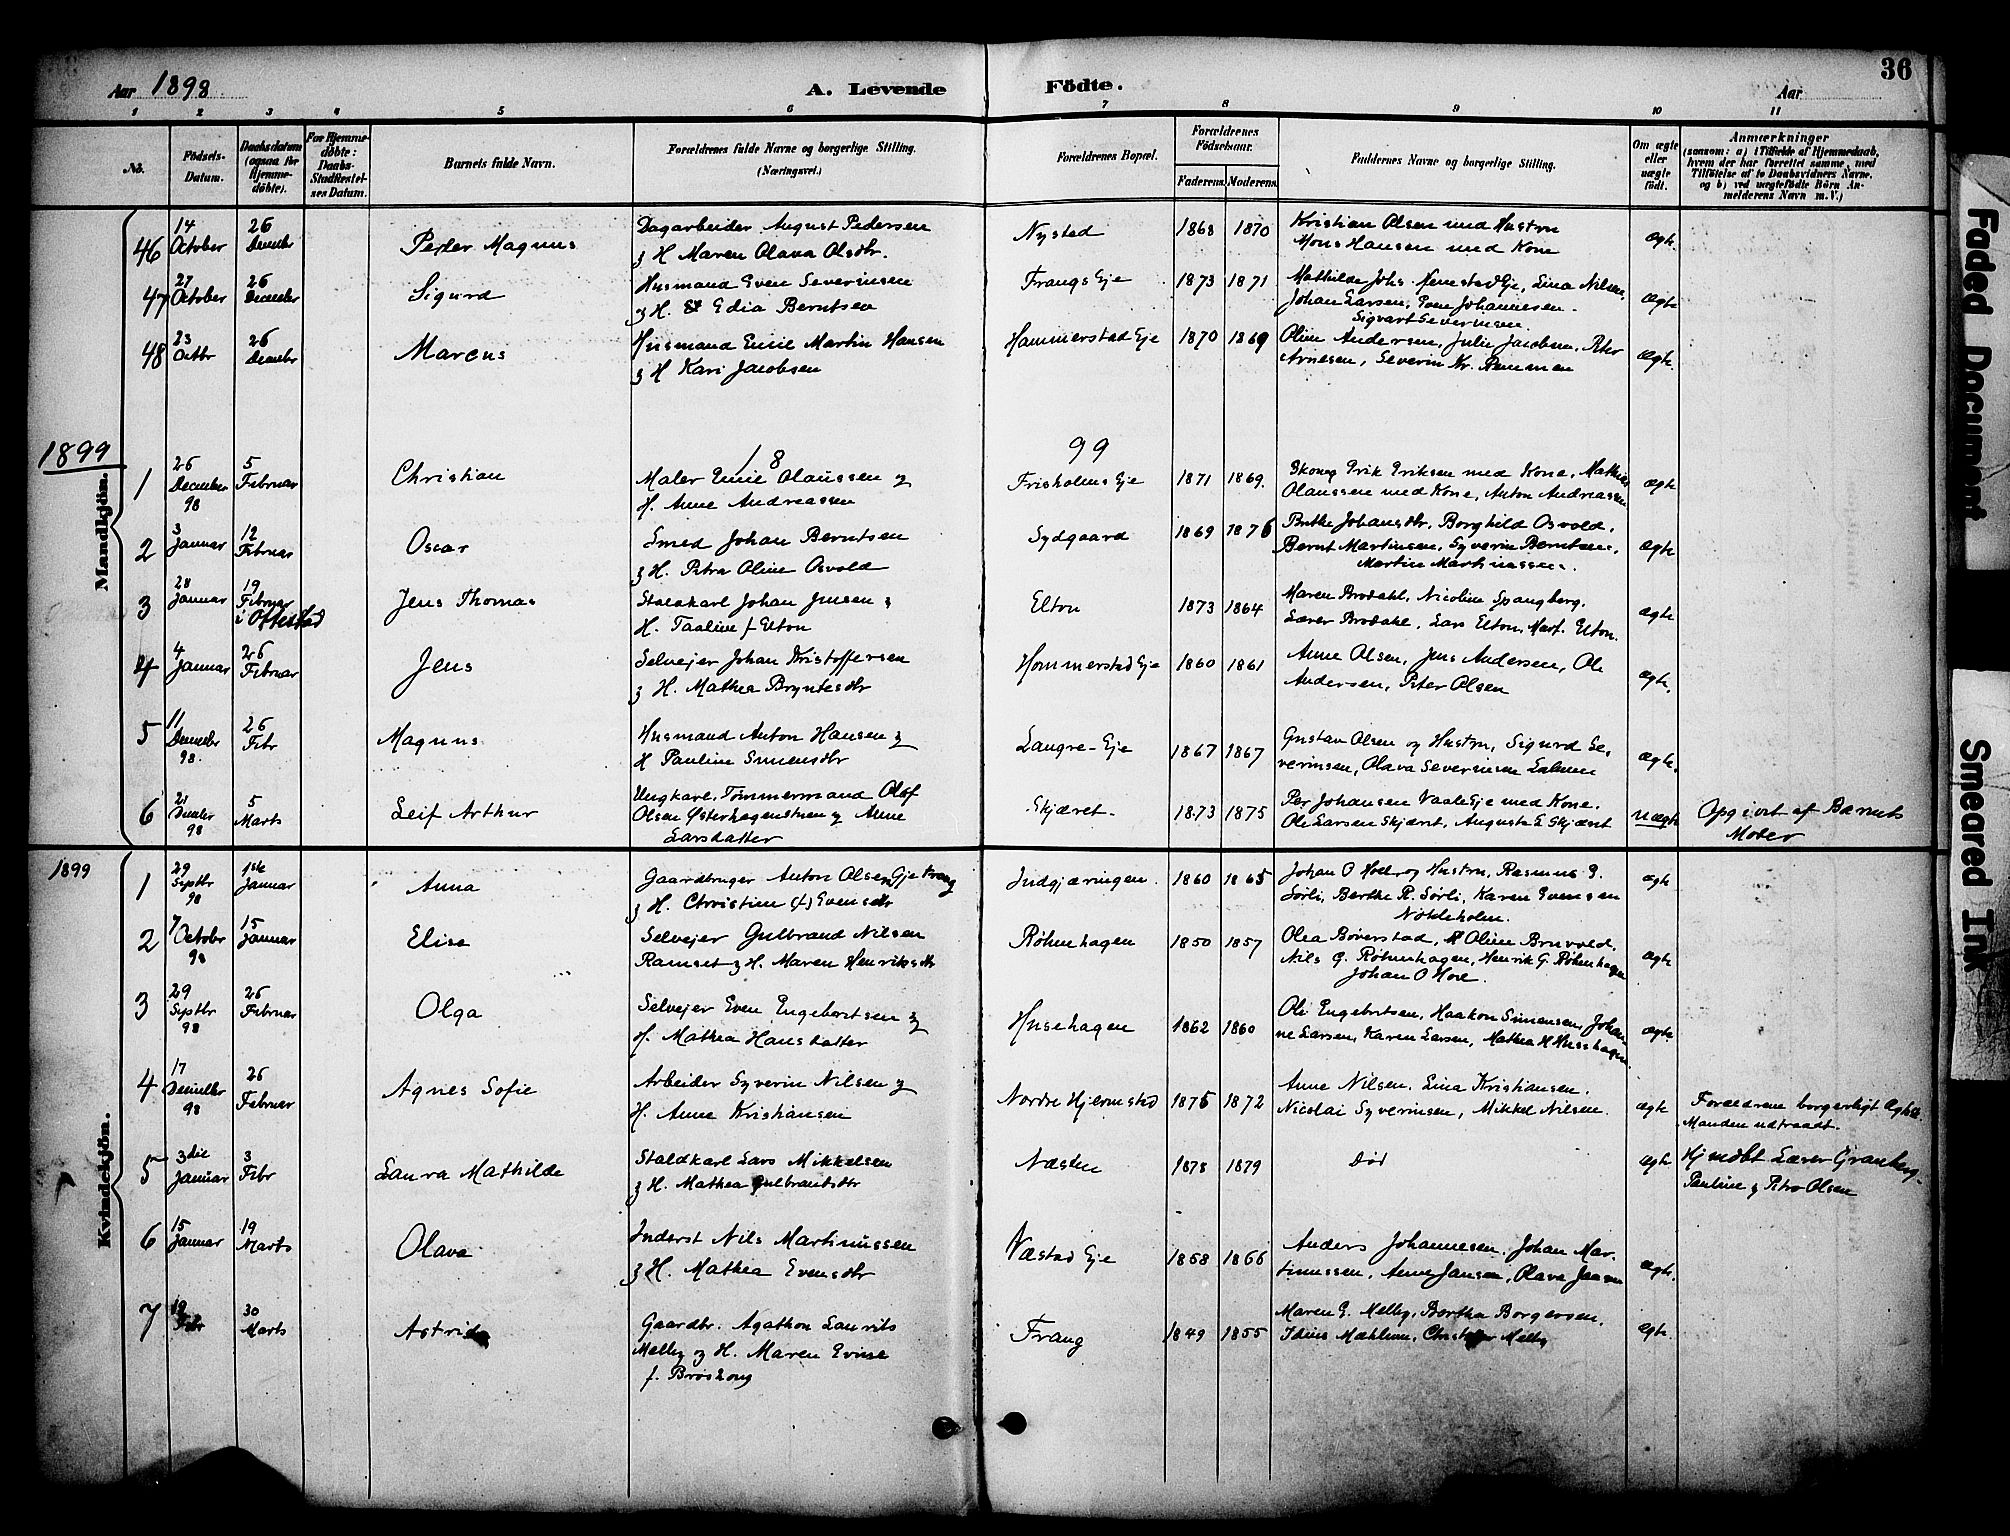 Aar 1898
A. Levende
Födte.
36
Aar
1 2 3 4 5 6 7 8 9 10 11
No.
Födsels-Datum.
Daabsdatum (ogsaa for Hjemme-döbte).
For Hjemme-döbte: Daabs-Stadfæstelses Datum.
Barnets fulde Navn.
Forældrenes fulde Navne og borgerlige Stilling. (Næringsvei.)
Forældrenes Bopæl.
Forældrenes Födselsaar.
Faderens. Moderens.
Faddernes Navne og borgerlige Stilling.
Om ægte eller uægte födt.
Anmærkninger
(saasom: a) i Tilfælde af Hjemmedaab,
hvem der har forrettet samme, med
Tilföielse af to Daabsvidners Navne,
og b) ved uægtefödte Börn An-
melderens Navn m.V.)
Mandkjön.
46 14 October 26 Decembr Peder Magnus Dagarbeider August Pedersen Nystad 1868 1870 Kristian Olsen med Hustru ægte.
& H. Maren Olava Olsdtr. Mons Hansen med Kone
47 27 October 26 Decembr Sigurd Husmand Even Severinsen Frangs Eje 1873 1871 Mathilde Johs. Eje, Lina Nilsen, ægte
& H. Edia Berntsen Johan Larsen, Johannesen.
Sigvart Severinsen.
48 23 Octbr 26 Decembr Marcus Husmand Emil Martin Hansen Hammerstad Eje 1870 1869 Oline Andersen, Julie Jacobsen, Peter ægte.
& H Kari Jacobsen Arnesen, Severin Kr.
1899
18 99
1 26 December 98 5 Februar Christian Maler Emil Olaussen og Frisholms Eje 1871 1869. Erik Eriksen med Kone, Mathias ægte
H. Anne Andreassen Olaussen med Kone, Anton Andreassen
2 3 Januar 12 Februar Oscar Smed Johan Berntsen Sydgaard 1869 1876 Berthe Johansdtr, Borghild Osvold, ægte
& H. Petra Oline Osvold Bernt Martinsen, Syverin Berntsen,
Martin Martinassen.
3 28 Januar 19 Februar i Ottestad Jens Thomas Staldkarl Johan Jensen & Elton 1873 1864 Maren Brodahl, Nicoline Spangberg, ægte
H. Taaline f Elton Lærer Brodahl, Lars Elton, Mart. Elton.
4 4 Januar 26 Februar Jens Selvejer Johan Kristoffersen Hommerstad Eje 1860 1861 Anne Olsen, Jens Andersen, Ole ægte.
& H. Mathea Bryntesdtr Andersen, Peter Olsen
5 11 Decembr 98. 26 Febr Magnus Husmand Anton Hansen og Langre-Eje 1867 1867 Gustav Olsen og Hustru, Sigurd Se- ægte.
H Pauline Simensdtr verinsen, Olava Severinsen
6 21 Decbr 98 5 Marts Leif Arthur Ungkarl, Tømmermand Olof Skjæret. 1873 1875 Per Johansen VaaleEje med Kone. uægte Opgivet af Barnets
Olsen Østerhagenstuen og Anne Ole Larsen Skjæret, Augusta L Skjæret Moder
Larsdatter
1899
Kvindekjön.
1 29 Septbr 98 1ste Januar Anna Gaardbruger Anton Olsen Eje Frang Indgjæringen. 1860 1865 Johan O Hoel og Hustru, Rasmus P. ægte
& H. Christine (+) Evensdtr Sørli, Berthe R. Sørli, Karen Evensen
Nökleholm.
2 7 Octobr 98 15 Januar Elise Selvejer Gulbrand Nilsen Røhnehagen 1850 1857 Olea Bøverstad, Oline Bruvold, ægte
Ramset & H. Maren Henriksdtr Nils G. Røhnehagen, Henrik G. Røhnehagen
Johan O Hoel.
3 29 Septbr 98 26 Februar Olga Selvejer Even Engebretsen og Husehagen 1862 1860 Ole Engebretsen, Haakon Simensen, Johan- ægte.
H. Mathea Hansdatter ne Larsen, Karen Larsen, Mathea H Husehagen
4 17 Decembr 98 26 Februar Agnes Sofie Arbeider Syverin Nilsen og Nordre Hjermstad 1875 1872 Anne Nilsen, Lina Kristiansen. ægte Forældrene borgerligt ægtev.
H. Anne Kristiansen Nicolai Syverinsen, Mikkel Nilsen. Manden udtraadt.
5 3die Januar 3 Febr Laura Mathilde Staldkarl Lars Mikkelsen Næsten 1878 1879 Død ægte Hjmdøbt Lærer Granberg.
& H. Mathea Gulbrandsdtr Pauline & Petra Olsen
6 15 Januar 19 Marts Olava Inderst Nils Martinussen Næstad Eje 1868 1866 Anders Johannesen, Johan Mar- ægte.
& H. Mathea Evensdtr tinussen, Anne Jansen, Olava Jansen
7 19 Febr 30 Marts Astrid Gaardbr. Agathon Laurits Frang 1849 1855 Maren G. Melby, Bertha Borgersen, ægte.
Melby og H. Maren Evine Idius Mæhlum, Christoffer Melby
f. Brøskong
Faded Document
Smeared Ink